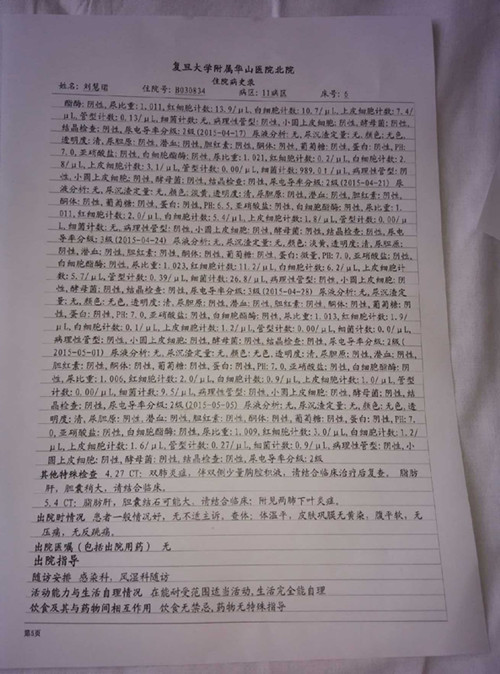 复旦大学附属华山医院北院
住院病史录
姓名: 刘慧珺 住院号: B030834 病区: 11病区 床号: 5
酯酶:阴性,尿比重:1.011,红细胞计数:13.9/μL,白细胞计数:10.7/μL,上皮细胞计数:7.4/
μL,管型计数:0.13/μL,细菌计数:无,病理性管型:阴性,小圆上皮细胞:阴性,酵母菌:阴性,
结晶检查:阴性,尿电导率分级:2级(2015-04-17) 尿液分析:无,尿沉渣定量:无,颜色:无色,
透明度:清,尿胆原:阴性,潜血:阴性,胆红素:阴性,酮体:阴性,葡萄糖:阴性,蛋白:阴性,PH:
7.0,亚硝酸盐:阴性,白细胞酯酶:阴性,尿比重:1.021,红细胞计数:0.2/μL,白细胞计数:2.
8/μL,上皮细胞计数:3.1/μL,管型计数:0.00/μL,细菌计数:989.01/μL,病理性管型:阴
性,小圆上皮细胞:阴性,酵母菌:阴性,结晶检查:阴性,尿电导率分级:2级(2015-04-21) 尿
液分析:无,尿沉渣定量:无,颜色:淡黄,透明度:清,尿胆原:阴性,潜血:阴性,胆红素:阴性,
酮体:阴性,葡萄糖:阴性,蛋白:阴性,PH:6.5,亚硝酸盐:阴性,白细胞酯酶:阴性,尿比重:1.
011,红细胞计数:2.0/μL,白细胞计数:5.4/μL,上皮细胞计数:1.8/μL,管型计数:0.00/μ
L,细菌计数:无,病理性管型:阴性,小圆上皮细胞:阴性,酵母菌:阴性,结晶检查:阴性,尿电
导率分级:3级(2015-04-24) 尿液分析:无,尿沉渣定量:无,颜色:淡黄,透明度:清,尿胆原:
阴性,潜血:阴性,胆红素:阴性,酮体:阴性,葡萄糖:阴性,蛋白:微量,PH:7.0,亚硝酸盐:阴性,
白细胞酯酶:阴性,尿比重:1.023,红细胞计数:11.2/μL,白细胞计数:6.2/μL,上皮细胞计
数:5.7/μL,管型计数:0.39/μL,细菌计数:26.8/μL,病理性管型:阴性,小圆上皮细胞:阴
性,酵母菌:阴性,结晶检查:阴性,尿电导率分级:3级(2015-04-28) 尿液分析:无,尿沉渣定
量:无,颜色:无色,透明度:清,尿胆原:阴性,潜血:阴性,胆红素:阴性,酮体:阴性,葡萄糖:阴
性,蛋白:阴性,PH:7.0,亚硝酸盐:阴性,白细胞酯酶:阴性,尿比重:1.013,红细胞计数:1.9/
μL,白细胞计数:0.1/μL,上皮细胞计数:1.2/μL,管型计数:0.00/μL,细菌计数:0.0/μL,
病理性管型:阴性,小圆上皮细胞:阴性,酵母菌:阴性,结晶检查:阴性,尿电导率分级:2级(
2015-05-01) 尿液分析:无,尿沉渣定量:无,颜色:无色,透明度:清,尿胆原:阴性,潜血:阴性,
胆红素:阴性,酮体:阴性,葡萄糖:阴性,蛋白:阴性,PH:7.0,亚硝酸盐:阴性,白细胞酯酶:阴
性,尿比重:1.006,红细胞计数:2.0/μL,白细胞计数:0.9/μL,上皮细胞计数:1.0/μL,管型
计数:0.00/μL,细菌计数:9.5/μL,病理性管型:阴性,小圆上皮细胞:阴性,酵母菌:阴性,结
晶检查:阴性,尿电导率分级:2级(2015-05-05) 尿液分析:无,尿沉渣定量:无,颜色:无色,透
明度:清,尿胆原:阴性,潜血:阴性,胆红素:阴性,酮体:阴性,葡萄糖:阴性,蛋白:阴性,PH:7.
0,亚硝酸盐:阴性,白细胞酯酶:阴性,尿比重:1.009,红细胞计数:3.0/μL,白细胞计数:1.2/
μL,上皮细胞计数:1.6/μL,管型计数:0.27/μL,细菌计数:0.9/μL,病理性管型:阴性,小
圆上皮细胞:阴性,酵母菌:阴性,结晶检查:阴性,尿电导率分级:2级
其他特殊检查 4.27 CT: 双肺炎症,伴双侧少量胸腔积液,请结合临床治疗后复查。 脂肪
肝,胆囊稍大,请结合临床。
5.4 CT: 脂肪肝,胆囊结石可能大,请结合临床;附见两肺下叶炎症。
出院时情况 患者一般情况好,无不适主诉,查体:体温平,皮肤巩膜无黄染,腹平软,无
压痛,无反跳痛。
出院医嘱(包括出院用药) 无
出院指导
随访安排 感染科,风湿科随访
活动能力与生活自理情况 在能耐受范围适当活动,生活完全能自理
饮食及其与药物间相互作用 饮食无禁忌,药物无特殊指导
第5页